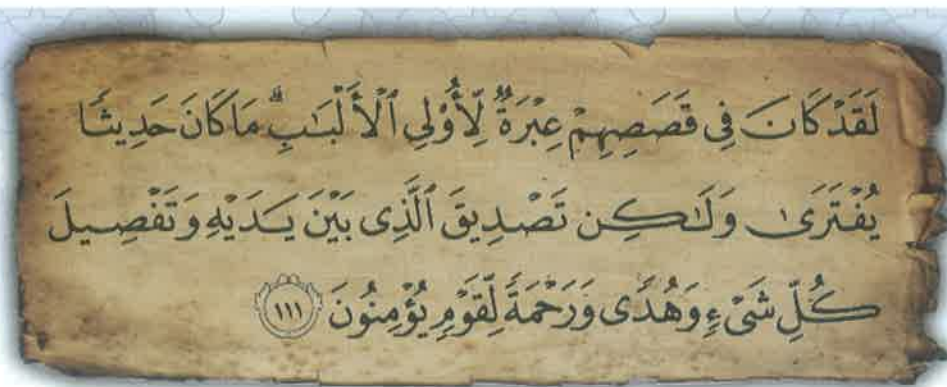 لَقَدْ كَانَ فِي قَصَصِهِمْ عِبْرَةٌ لِّأُوْلِي ٱلْأَلْبَٰبِۗ مَا كَانَ حَدِيثًا
يُفْتَرَىٰ وَلَٰكِن تَصْدِيقَ ٱلَّذِى بَيْنَ يَدَيْهِ وَتَفْصِيلَ
كُلِّ شَىْءٍ وَهُدًى وَرَحْمَةً لِّقَوْمٍ يُؤْمِنُونَ ١١١